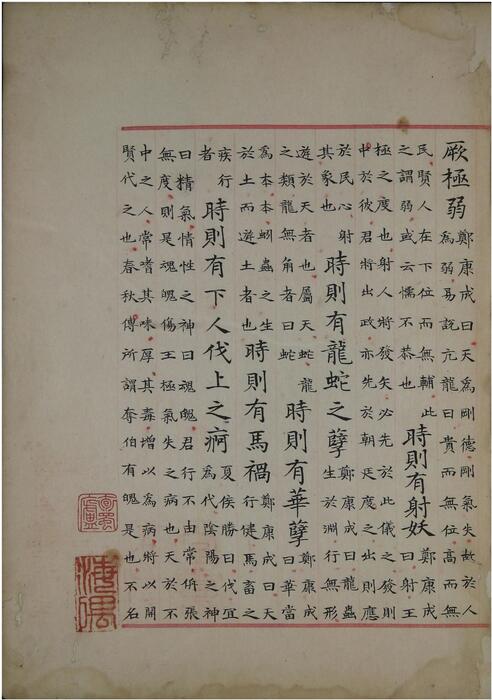 厥極弱鄭康成曰天為剛德剛氣失故於人為弱易說亢龍曰貴而無位高而無
民賢人在下位而無輔此之謂弱或云懦不恭也時則有射妖鄭康成曰射王
極之度也射人將發矢必先於此儀之發則中於彼君將出政亦先於朝廷度之出則應
於民心射其象也時則有龍蛇之孽鄭康成曰龍蟲生於淵行無形
遊於天者也屬天蛇龍之類龍無角者曰蛇時則有華孽鄭康成曰華當
為本本蚓蟲之生於土而遊土者也時則有馬禍鄭康成曰天行健馬畜之
疾行者時則有下人伐上之痾夏侯勝曰伐宜為代陰陽之神
曰精氣情性之神曰魂魄君行不由常侜張無度則是魂魄傷王極氣失之病也天於不
中之人常嗜其味厚其毒增以為病將以開賢代之也春秋傳所謂奪伯有魄是也不名